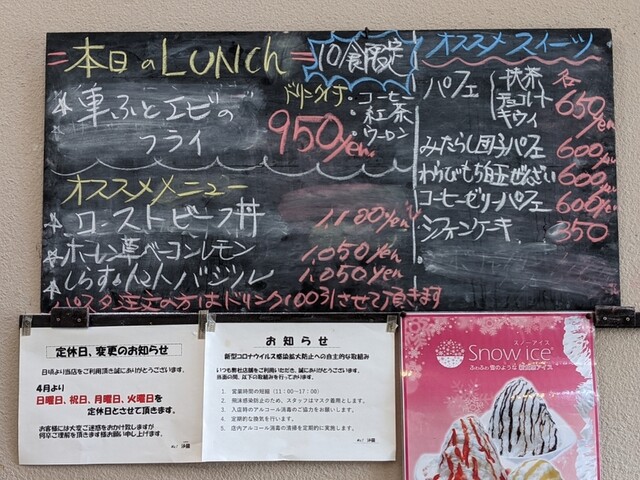 本日のLUNCH
10食限定
車ふとエビの
フライ
ドリンク付
・コーヒー
・紅茶
・ウーロン
950/yen
オススメメニュー
ローストビーフ丼 1,100yen
ホーレン草ベーコンレモン 1,050yen
しらす&トマトバジル 1,050yen
パスタ注文の方はドリンク100引させて頂きます
オススメスイーツ
パフェ
抹茶
チョコバナナ
キウイ
各650/yen
みたらし団子パフェ 600yen
わらびもち白玉ぜんざい 600yen
コーヒーゼリーパフェ 600yen
シフォンケーキ 350
定休日、変更のお知らせ
日頃より当店をご利用頂き誠にありがとうございます。
4月より
日曜日、祝日、月曜日、火曜日を
定休日とさせて頂きます。
お客様には大変ご迷惑をおかけ致しますが
何卒ご理解を頂きます様お願い申し上げます。
お知らせ
新型コロナウイルス感染拡大防止への自主的な取組み
いつも弊社店舗をご利用いただき、誠にありがとうございます。
当面の間、以下の取組みを行っております。
1. 営業時間の短縮（11:00～17:00）
2. 飛沫感染防止のため、スタッフはマスク着用とします。
3. 入店時のアルコール消毒のご協力をお願いします。
4. 定期的な換気を行います。
5. 店内アルコール消毒の清掃を定期的に実施します。
スノーアイス
Snow ice
ふわふわ雪のような